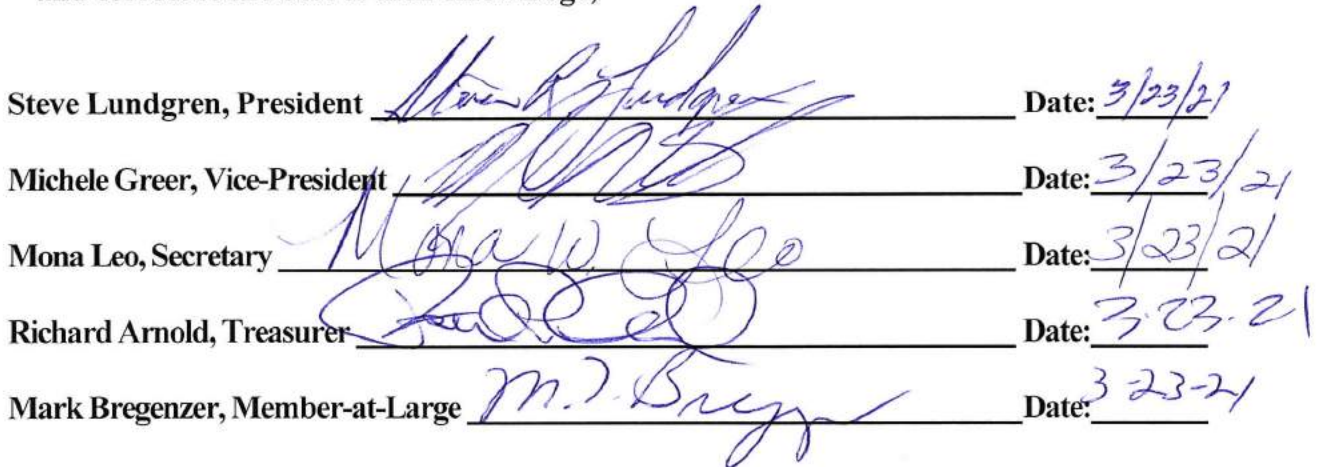 Steve Lundgren, President Steven R Lundgren Date: 3/23/21
Michele Greer, Vice-President Date: 3/23/21
Mona Leo, Secretary Mona W. Leo Date: 3/23/21
Richard Arnold, Treasurer Date: 3.23.21
Mark Bregenzer, Member-at-Large M.J. Date: 3-23-21